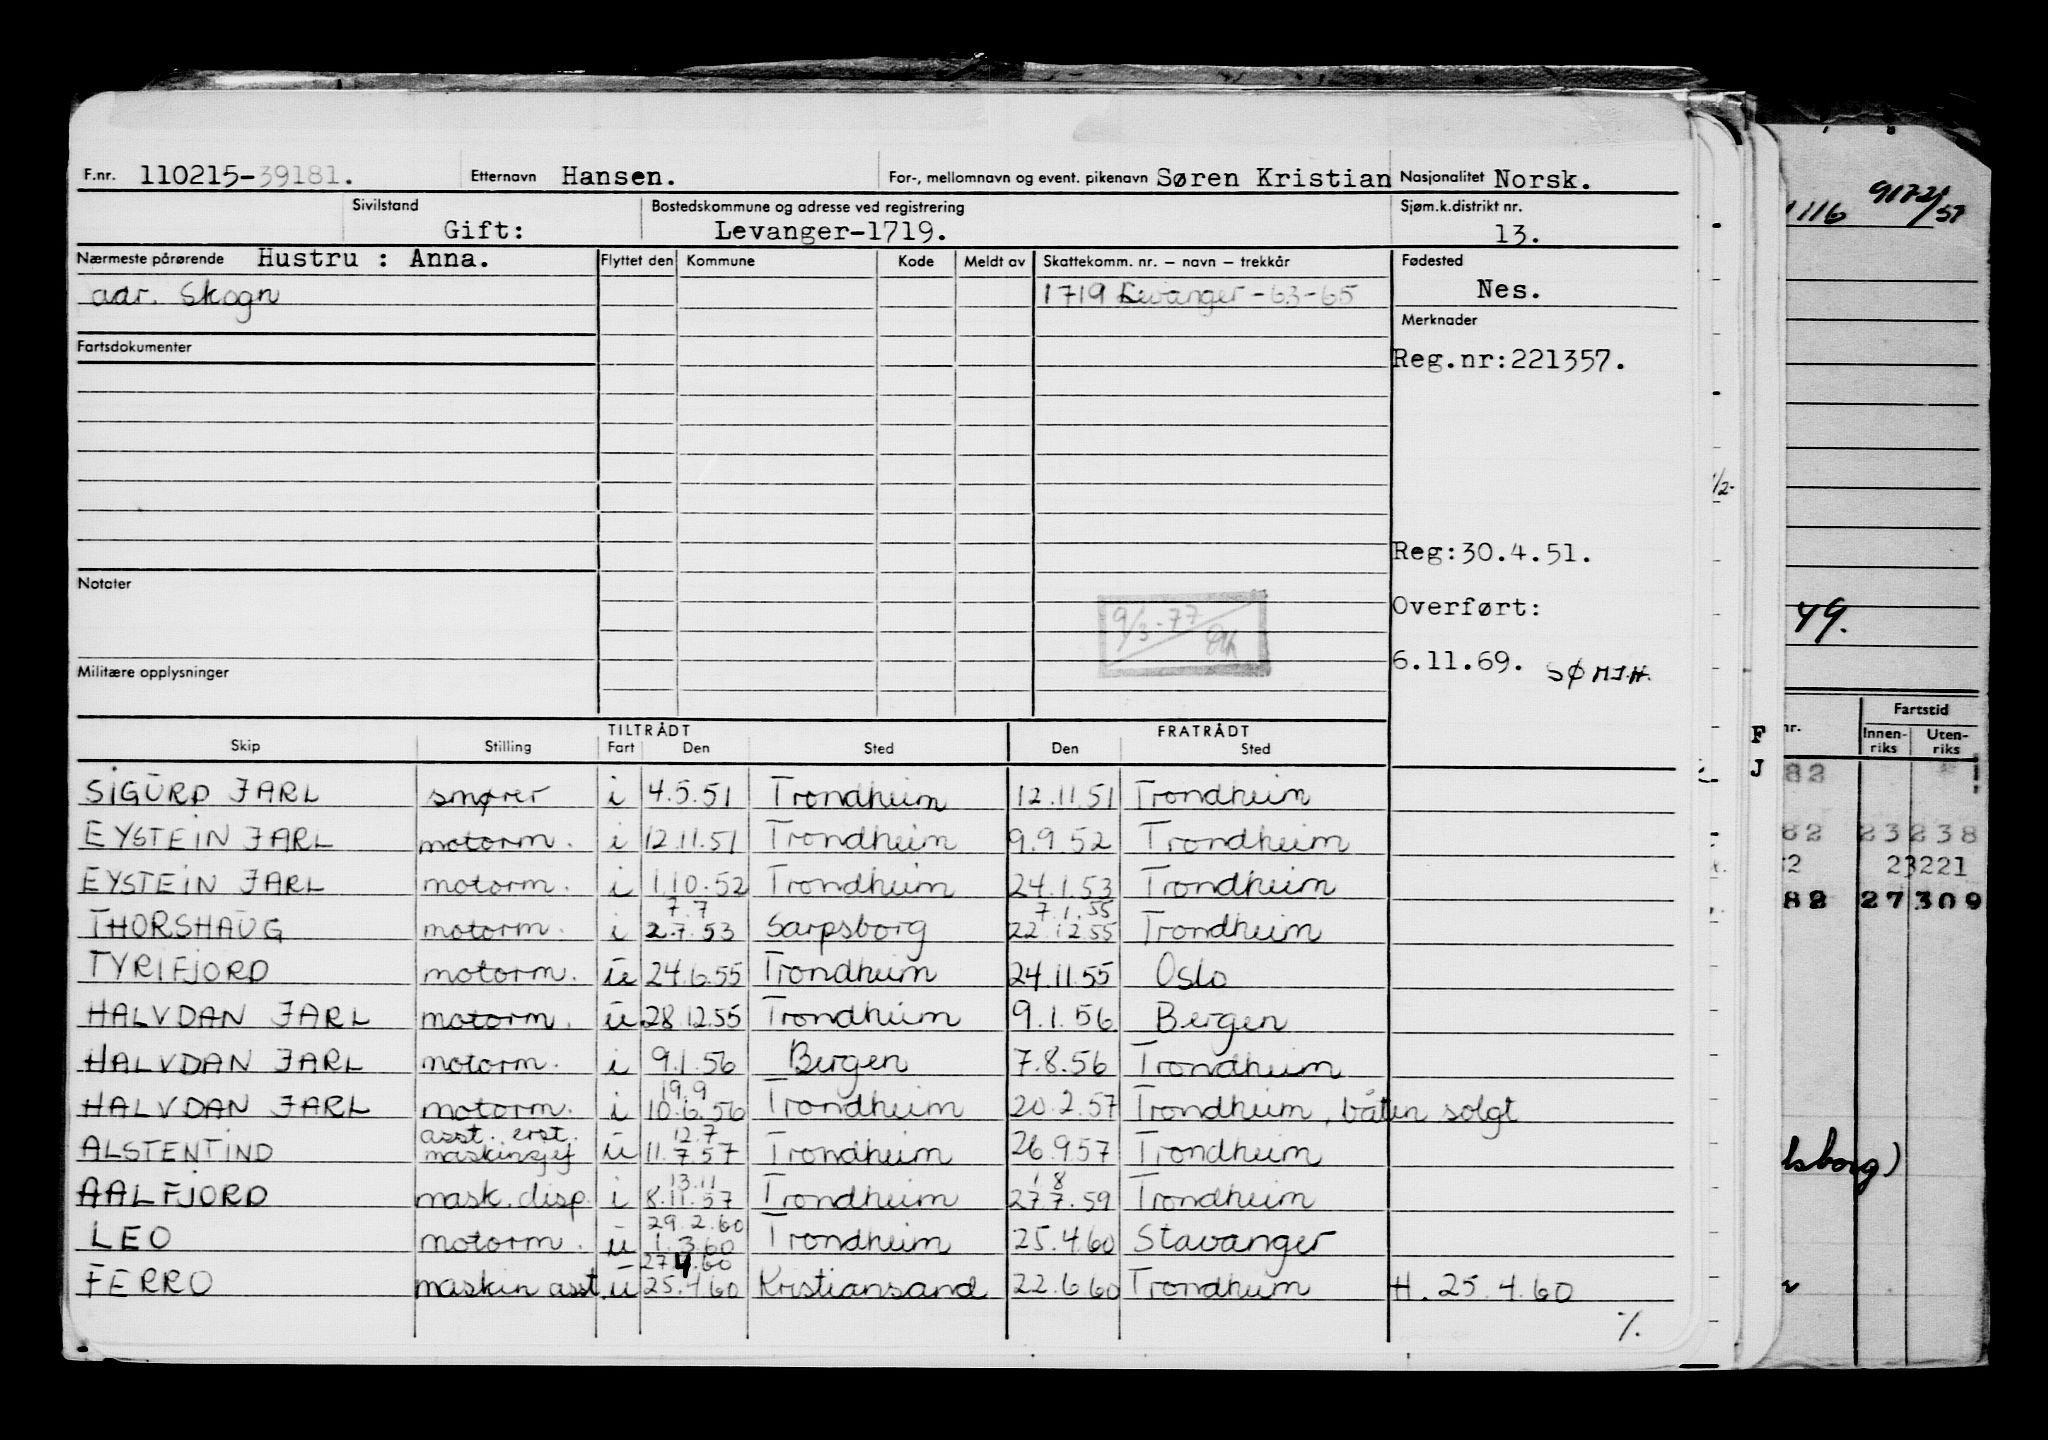 F.nr. 110215-39181. Etternavn Hansen. For-, mellomnavn og event. pikenavn Søren Kristian Nasjonalitet Norsk.
Sivilstand Gift: Bostedskommune og adresse ved registrering Levanger-1719. Sjøm.k.distrikt nr. 13.
Nærmeste pårørende Hustru : Anna. Flyttet den Kommune Kode Meldt av Skattekomm. nr. – navn – trekkår Fødested
adr. Skogn 1719 Levanger -63-65 Nes.
Merknader
Fartsdokumenter
Reg.nr:221357.
Reg:30.4.51.
Notater
Overført:
9/3-77
6.11.69. SØ MJ.H.
Militære opplysninger
TILTRÅDT FRATRÅDT
Skip Stilling Fart Den Sted Den Sted
SIGURD JARL smører i 4.5.51 Trondheim 12.11.51 Trondheim
EYSTEIN JARL motorm. i 12.11.51 Trondheim 9.9.52 Trondheim
EYSTEIN JARL motorm. i 1.10.52 Trondheim 24.1.53 Trondheim
7.7 7.1.55
THORSHAUG motorm. i 2.7.53 Sarpsborg 22.12.55 Trondheim
TYRIFJORD motorm. u 24.6.55 Trondheim 24.11.55 Oslo
HALVDAN JARL motorm. u 28.12.55 Trondheim 9.1.56 Bergen
HALVDAN JARL motorm. i 9.1.56 Bergen 7.8.56 Trondheim
19.9
HALVDAN JARL motorm. i 10.6.56 Trondheim 20.2.57 Trondheim, båten solgt
asst. erst. 12.7
ALSTENTIND maskinsjef u 11.7.57 Trondheim 26.9.57 Trondheim
13.11 1 8
AALFJORD mask. disp. i 8.11.57 Trondheim 27.7.59 Trondheim
29.2.60
LEO motorm. u 1.3.60 Trondheim 25.4.60 Stavanger
27.4.60
FERRO maskin asst. u 25.4.60 Kristiansand 22.6.60 Trondheim H. 25.4.60
%.
1116 9172/57
1/2-
49.
Fartstid
nr. Innen-riks Uten-riks
F
J
82
82 23 238
2 23221
82 27 309
lsborg)